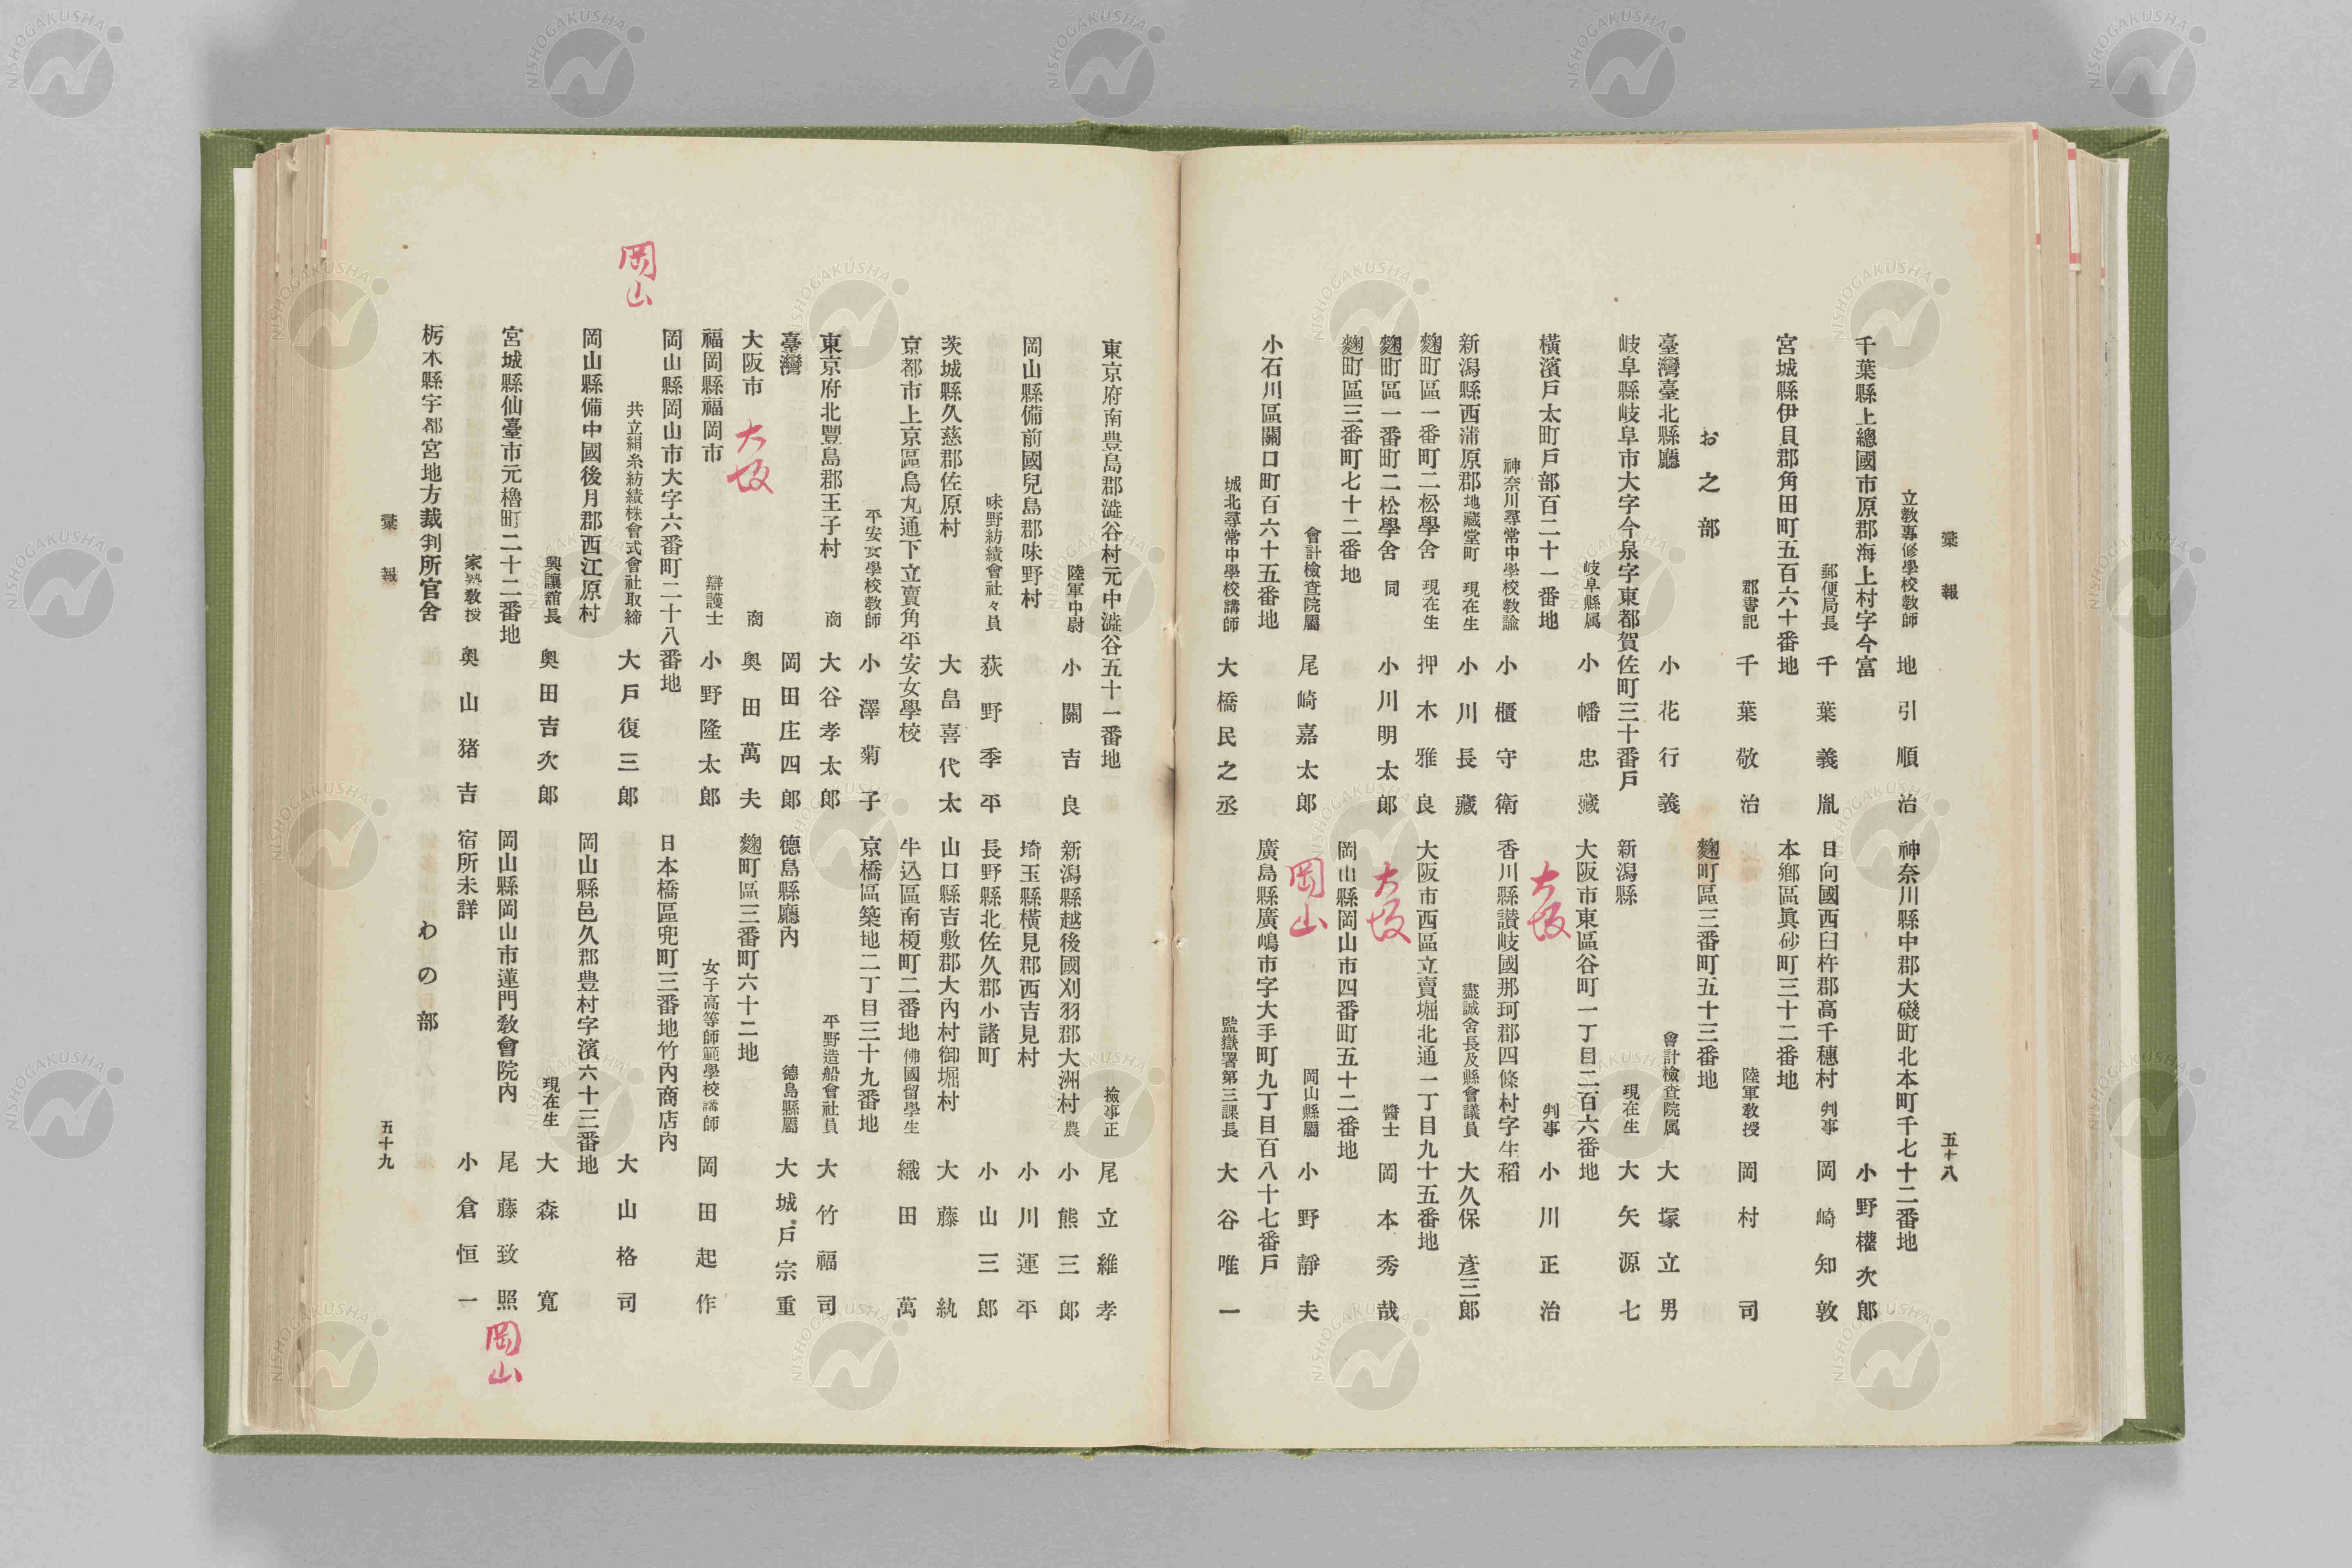 彙報
五十八
立教專修學校教師 地引順治
千葉縣上總國市原郡海上村字今富
郵便局長 千葉義胤
宮城縣伊貝郡角田町五百六十番地
郡書記 千葉敬治
お之部
臺灣臺北縣廳 小花行義
岐阜縣岐阜市大字今泉字東都賀佐町三十番戶
岐阜縣属 小幡忠藏
橫濱戶太町戶部百二十一番地
神奈川尋常中學校教諭 小櫃守衛
新潟縣西蒲原郡地藏堂町 現在生 小川長藏
麴町區一番町二松學舍 現在生 押木雅良
麴町區一番町二松學舍 同 小川明太郎
麴町區三番町七十二番地
會計檢查院屬 尾崎嘉太郎
小石川區關口町百六十五番地
城北尋常中學校講師 大橋民之丞
神奈川縣中郡大磯町北本町千七十二番地
小野權次郎
日向國西臼杵郡高千穗村 判事 岡崎知敦
本鄉區眞砂町三十二番地
陸軍教授 岡村司
麴町區三番町五十三番地
會計檢查院属 大塚立男
新潟縣 現在生 大矢源七
大阪市東區谷町一丁目二百六番地
大坂 判事 小川正治
香川縣讃岐國那珂郡四條村字生稻
盡誠舍長及縣會議員 大久保彥三郎
大阪市西區立賣堀北通一丁目九十五番地
大坂 醫士 岡本秀哉
岡山縣岡山市四番町五十二番地
岡山 岡山縣屬 小野靜夫
廣島縣廣嶋市字大手町九丁目百八十七番戶
監獄署第三課長 大谷唯一
東京府南豊島郡澁谷村元中澁谷五十一番地
陸軍中尉 小關吉良
岡山縣備前國兒島郡味野村
味野紡績會社々員 荻野季平
茨城縣久慈郡佐原村 大畠喜代太
京都市上京區烏丸通下立賣角平安女學校
平安女學校教師 小澤菊子
東京府北豐島郡王子村 商 大谷孝太郎
臺灣 岡田庄四郎
大阪市 大坂 商 奧田萬夫
福岡縣福岡市 辯護士 小野隆太郎
岡山縣岡山市大字六番町二十八番地
岡山 共立絹糸紡績株會式會社取締 大戶復三郎
岡山縣備中國後月郡西江原村
興讓館長 奧田吉次郎
宮城縣仙臺市元櫓町二十二番地
家塾教授 奧山猪吉
栃木縣宇都宮地方裁判所官舍
檢事正 尾立維孝
新潟縣越後國刈羽郡大洲村 農 小熊三郎
埼玉縣橫見郡西吉見村 小川運平
長野縣北佐久郡小諸町 小山三郎
山口縣吉敷郡大內村御堀村 大藤紈
牛込區南榎町二番地 佛國留學生 織田萬
京橋區築地二丁目三十九番地
平野造船會社員 大竹福司
德島縣廳內 德島縣屬 大城戶宗重
麴町區三番町六十二地
女子高等師範學校講師 岡田起作
日本橋區兜町三番地竹內商店內
大山格司
岡山縣邑久郡豊村字濱六十三番地
現在生 大森寬
岡山縣岡山市蓮門教會院內 尾藤致照 岡山
宿所未詳 小倉恒一
わの部
彙報
五十九
NISHOGAKUSHA